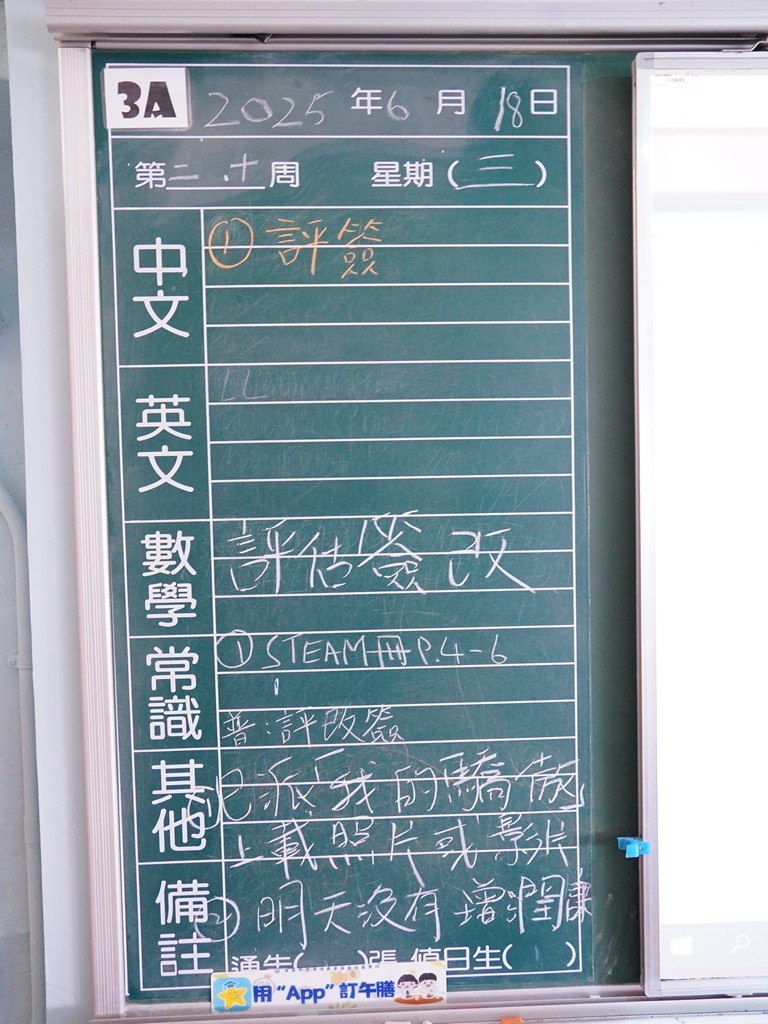 3A 2025年6月18日
第二十周 星期(三)
中文 ① 評簽
英文
數學 評估簽改
常識 ① STEAM冊 P.4-6
普:評改簽
其他 已派「我的驕傲」
上載照片或影片
備註 ② 明天沒有增潤課
通告( )張 值日生( )
用“App”訂午膳